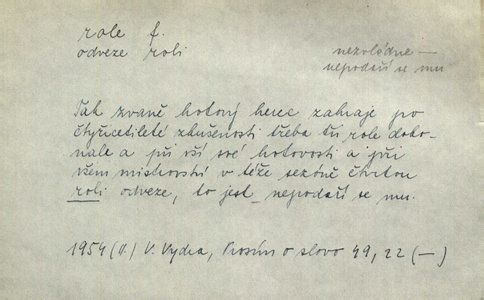 role f.
odveze roli
nezvládne —
nepodaří se mu
Tak zvaně hotový herec zahraje po
čtyřicetileté zkušenosti třeba tři role doko-
nale a při vší své hotovosti a při
všem mistrovství v téže sezóně čtvrtou
roli odveze, to jest nepodaří se mu.
1954 (V.) V. Vydra, Prosím o slovo 49, 22 (—)